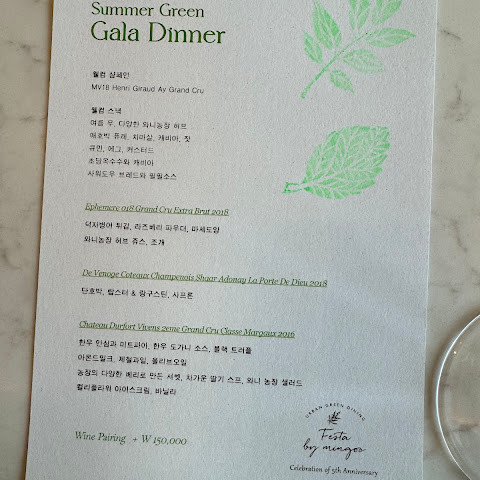 Summer Green
Gala Dinner
웰컴 샴페인
MV18 Henri Giraud Ay Grand Cru
웰컴 스낵
여름 무, 다양한 와니농장 허브
애호박 퓨레, 치마살, 캐비아, 잣
큐민, 에그, 커스터드
초당옥수수와 캐비아
사워도우 브레드와 밀밀소스
Ephemere 018 Grand Cru Extra Brut 2018
닥자방어 튀김, 라즈베리 파우더, 마제도알
와니농장 허브 쥬스, 조개
De Venoge Coteaux Champenois Shaar Adonay La Porte De Dieu 2018
단호박, 랍스터 & 랑구스틴, 사프론
Chateau Durfort Vivens 2eme Grand Cru Classe Margaux 2016
한우 안심과 미트파이, 한우 도가니 소스, 블랙 트러플
아몬드밀크, 제철과일, 올리브오일
농장의 다양한 베리로 만든 셔벗, 차가운 딸기 스프, 와니 농장 샐러드
컬리플라워 아이스크림, 바닐라
Wine Pairing + W 150,000
URBAN GREEN DINING
Festa
by mingoo
Celebration of 5th Anniversary